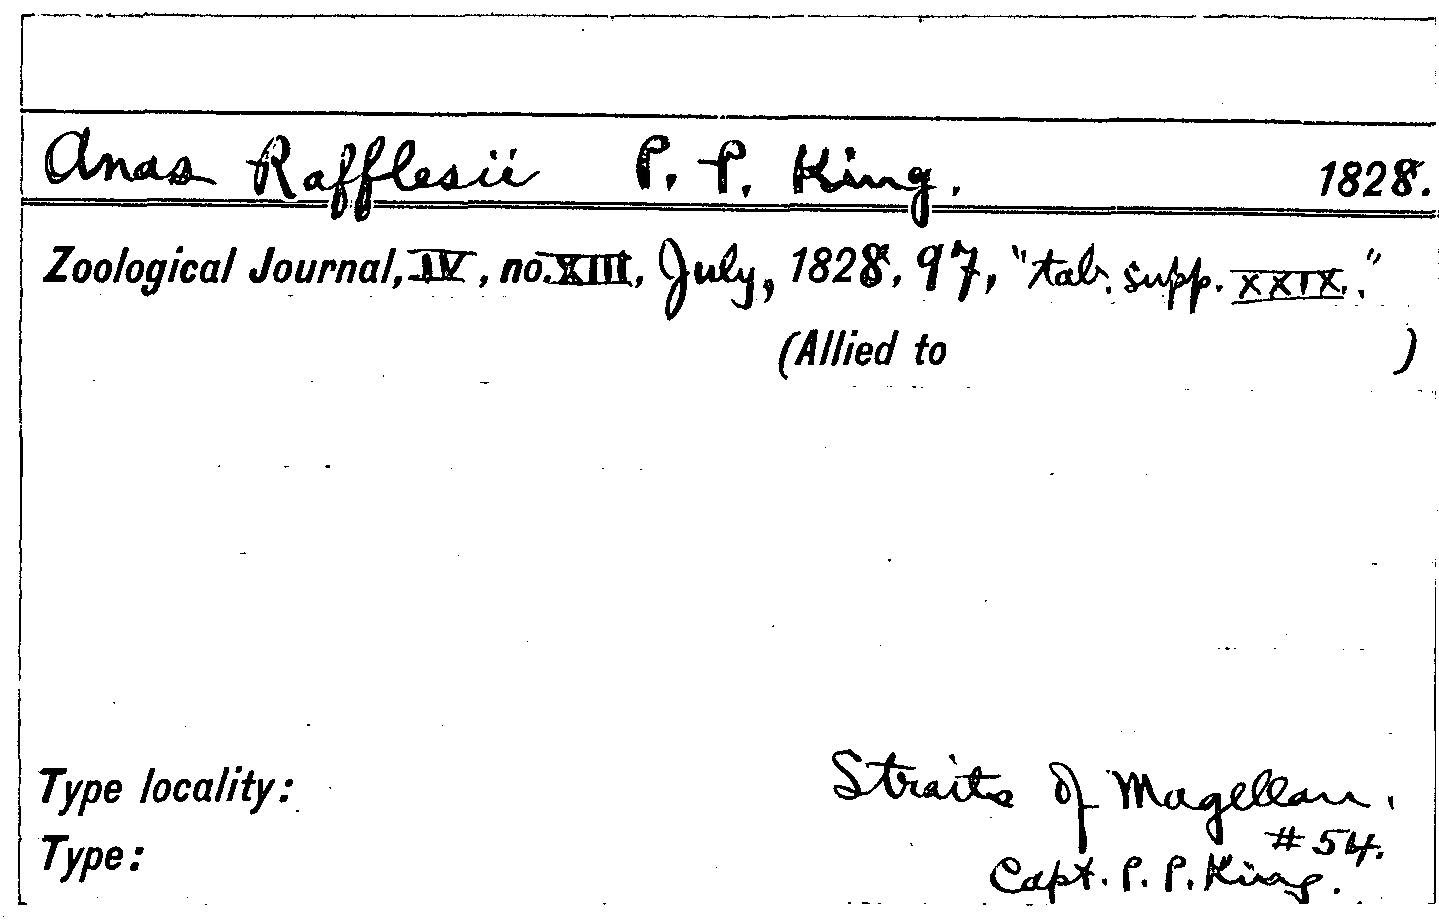 Anas Rafflesii P. P. King. 1828.
Zoological Journal, IV, no. XIII, July, 1828, 97, "tab. supp. XXIX."
(Allied to )
Type locality: Straits of Magellan.
#54.
Type: Capt. P. P. King.